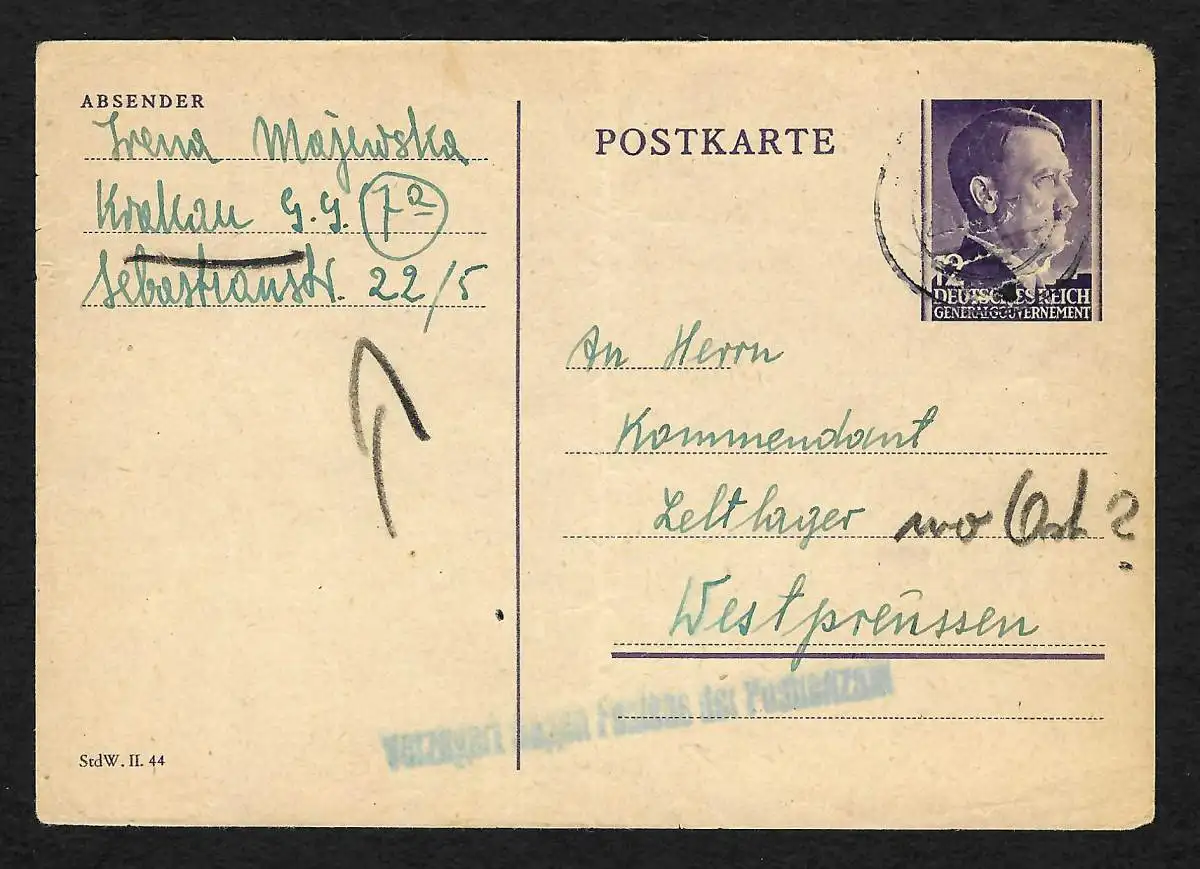 ABSENDER
Irena Majewska
Krakau G.G. 7a
Sebastianstr. 22/5
POSTKARTE
12
DEUTSCHES REICH
GENERALGOUVERNEMENT
An Herrn
Kommendant
Zeltlager wo Ort?
Westpreüssen
Verzögert wegen Fehlens der Postleitzahl
StdW. II. 44